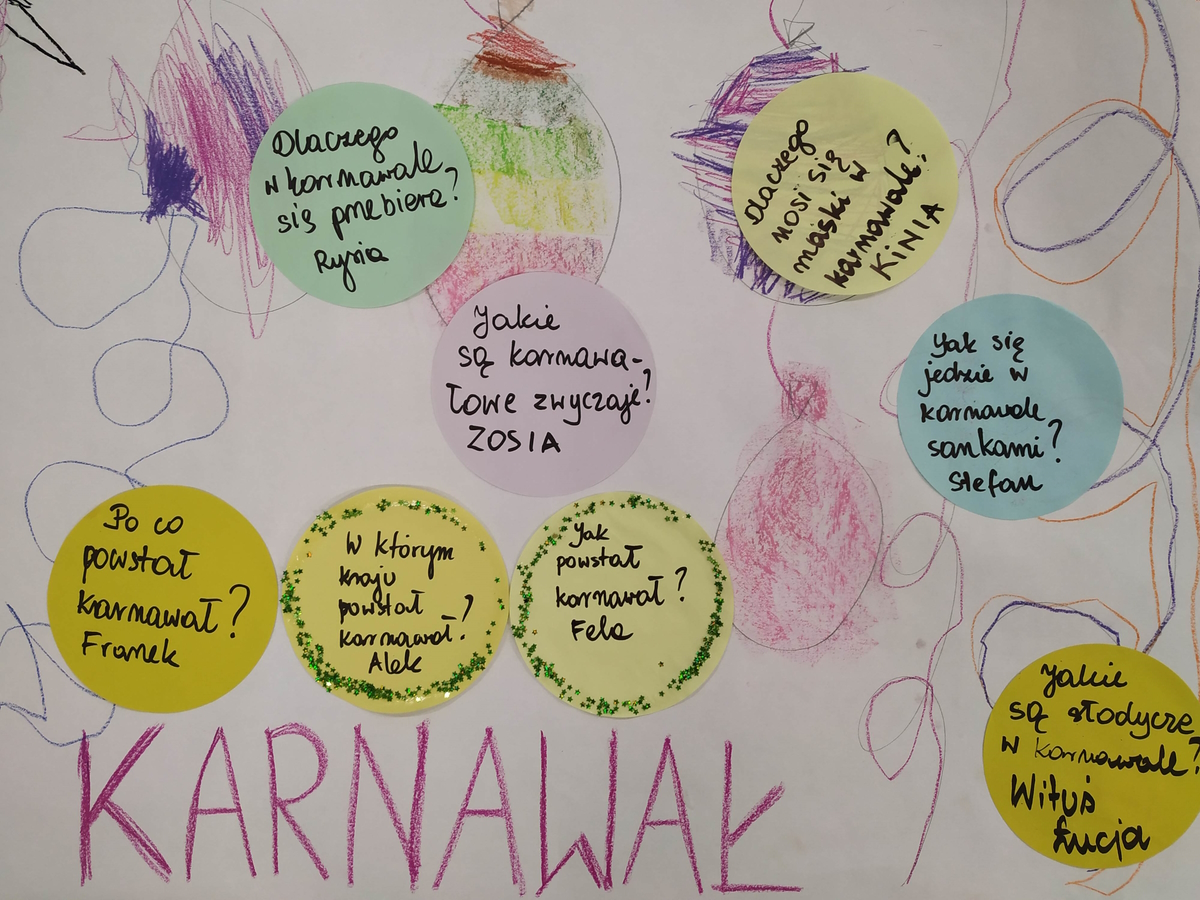 Dlaczego
w karnawale
się przebiera?
Rysia
Dlaczego
nosi się
maski w
karnawale?
KINIA
Jakie
są karnawa-
łowe zwyczaje?
ZOSIA
Jak się
jedzie w
karnawale
sankami?
Stefan
Po co
powstał
karnawał?
Franek
W którym
kraju
powstał
karnawał?
Alek
Jak
powstał
karnawał?
Fela
Jakie
są słodycze
w karnawale?
Wituś
Łucja
KARNAWAŁ